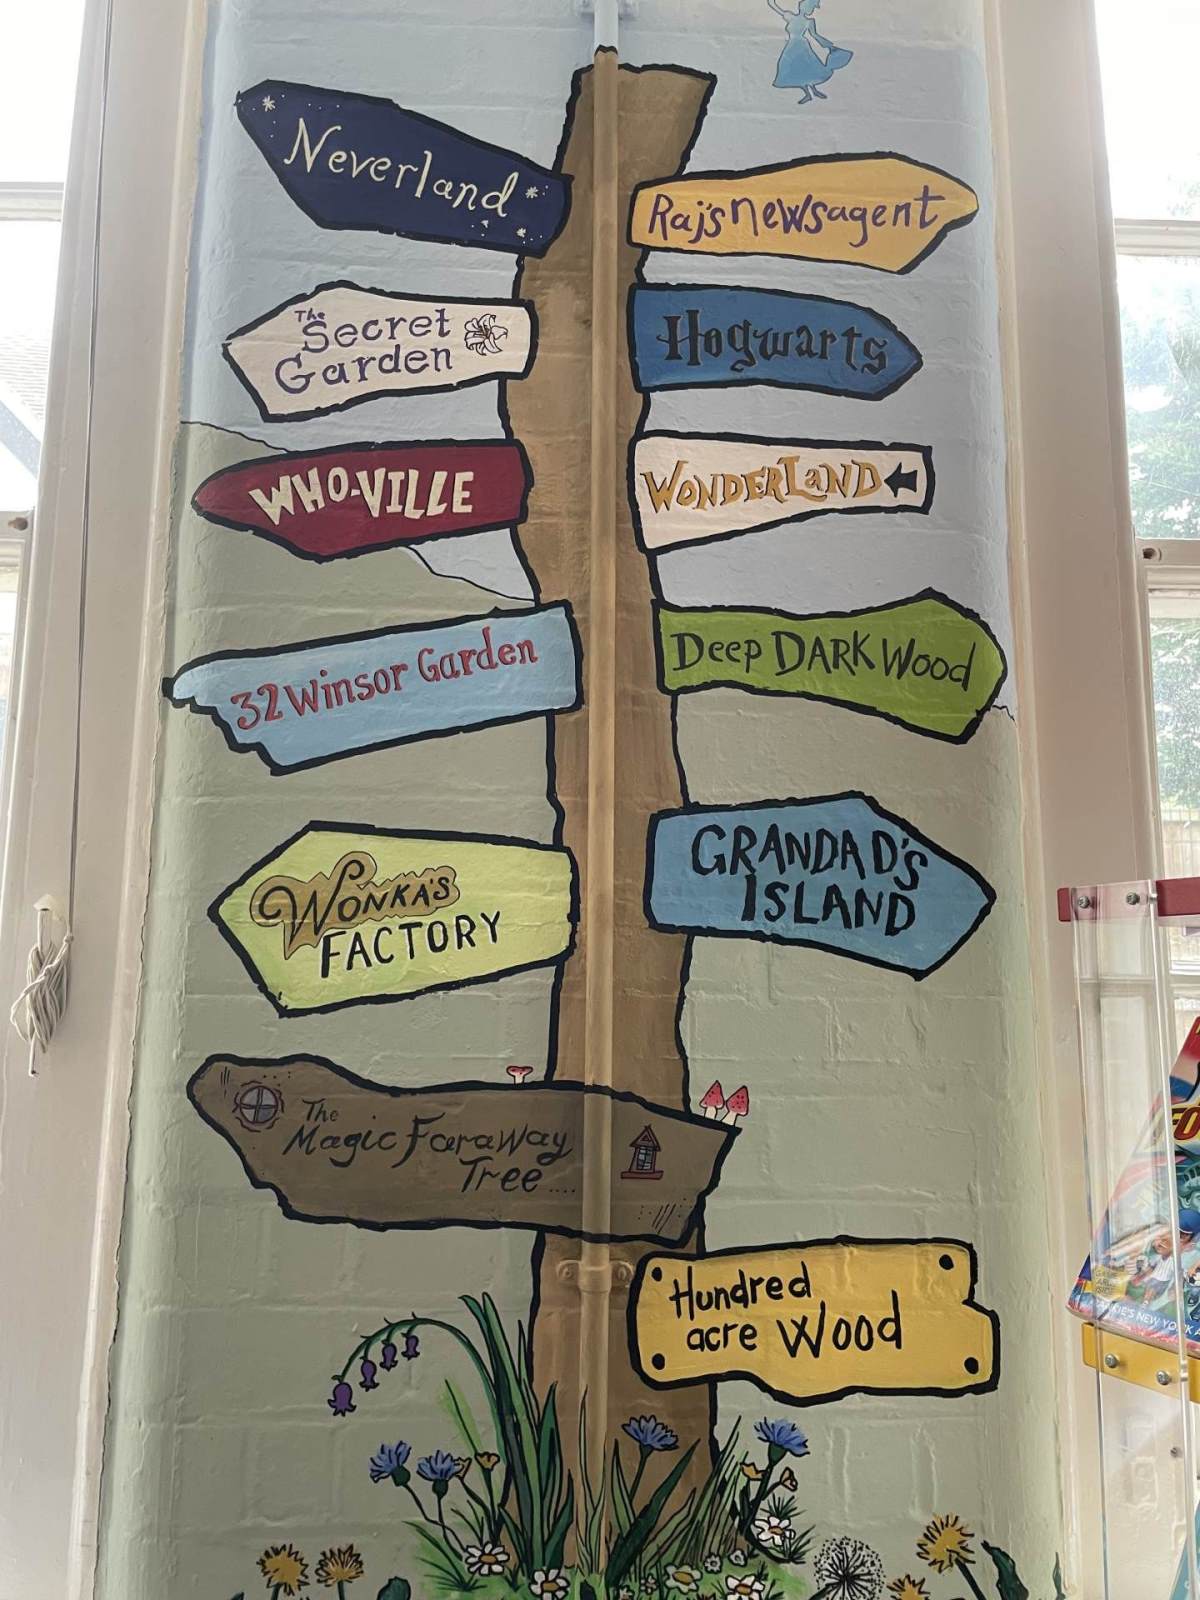 Neverland
Raj's newsagent
The
Secret
Garden
Hogwarts
WHO-VILLE
WONDERLAND
32 Winsor Garden
Deep DARK Wood
WONKA'S
FACTORY
GRANDAD'S
ISLAND
The
Magic Faraway
Tree....
Hundred
acre Wood